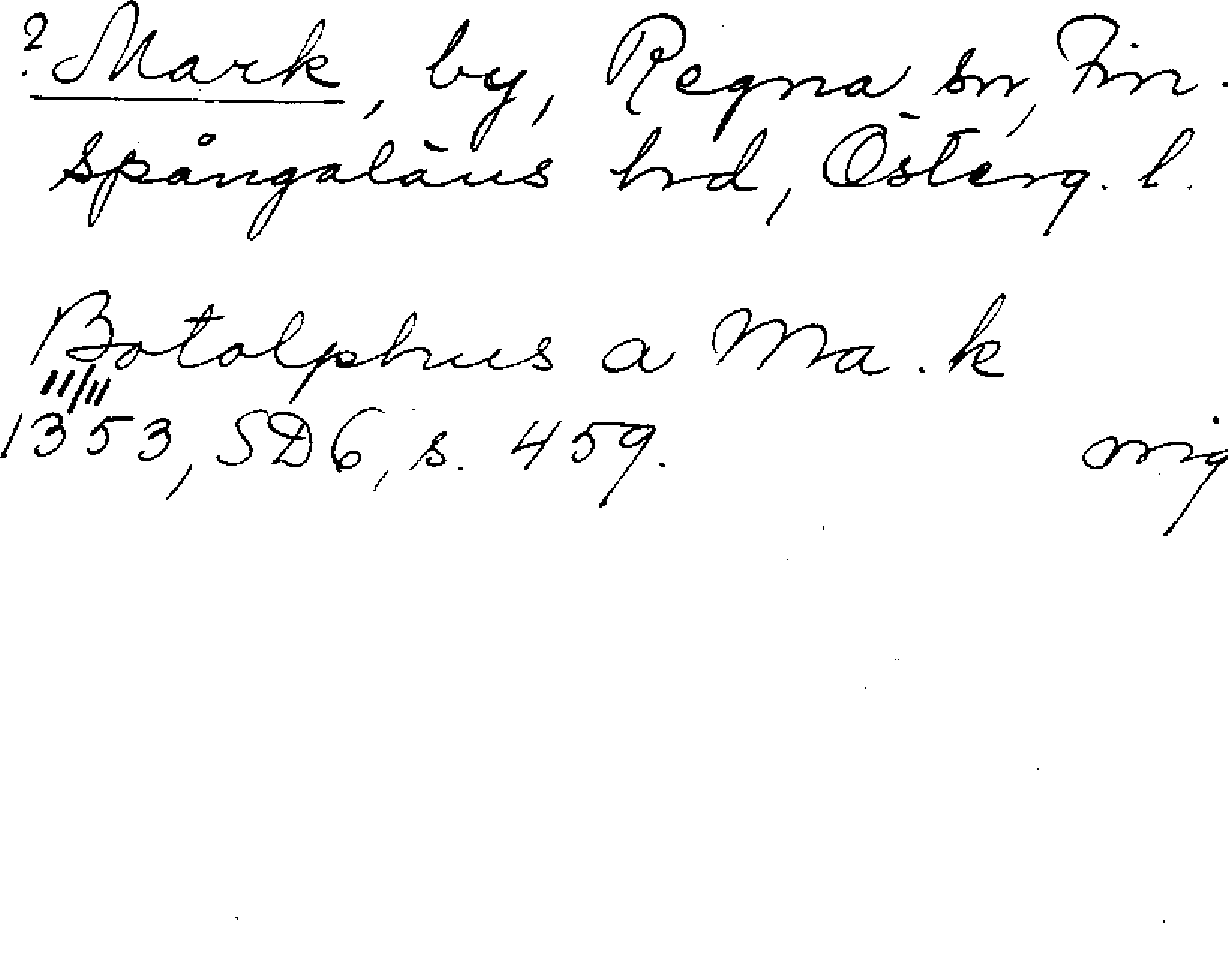 ? Mark, by, Regna sn, Fin-
spångaläns hrd, Österg. l.
Botolphus a Ma.k
11/11
1353, SD6, s. 459. mig